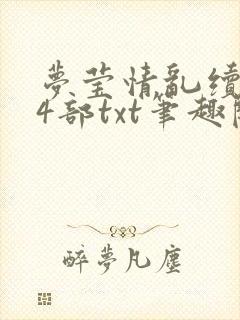 夢莹情亂續
4部txt筆趣閱
醉夢凡塵